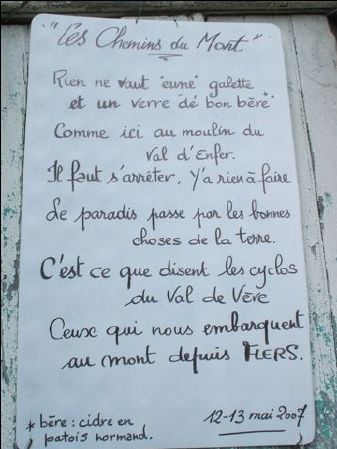 "Les Chemins du Mont"
Rien ne vaut "eune" galette
et un verre de bon bère*
Comme ici au moulin du
Val d'Enfer.
Il faut s'arrêter, Y'a rien à faire
Le paradis passe par les bonnes
choses de la terre.
C'est ce que disent les cyclos
du Val de Vère
Ceux qui nous embarquent
au mont depuis FLERS.
* bère : cidre en
patois normand.
12-13 mai 2007